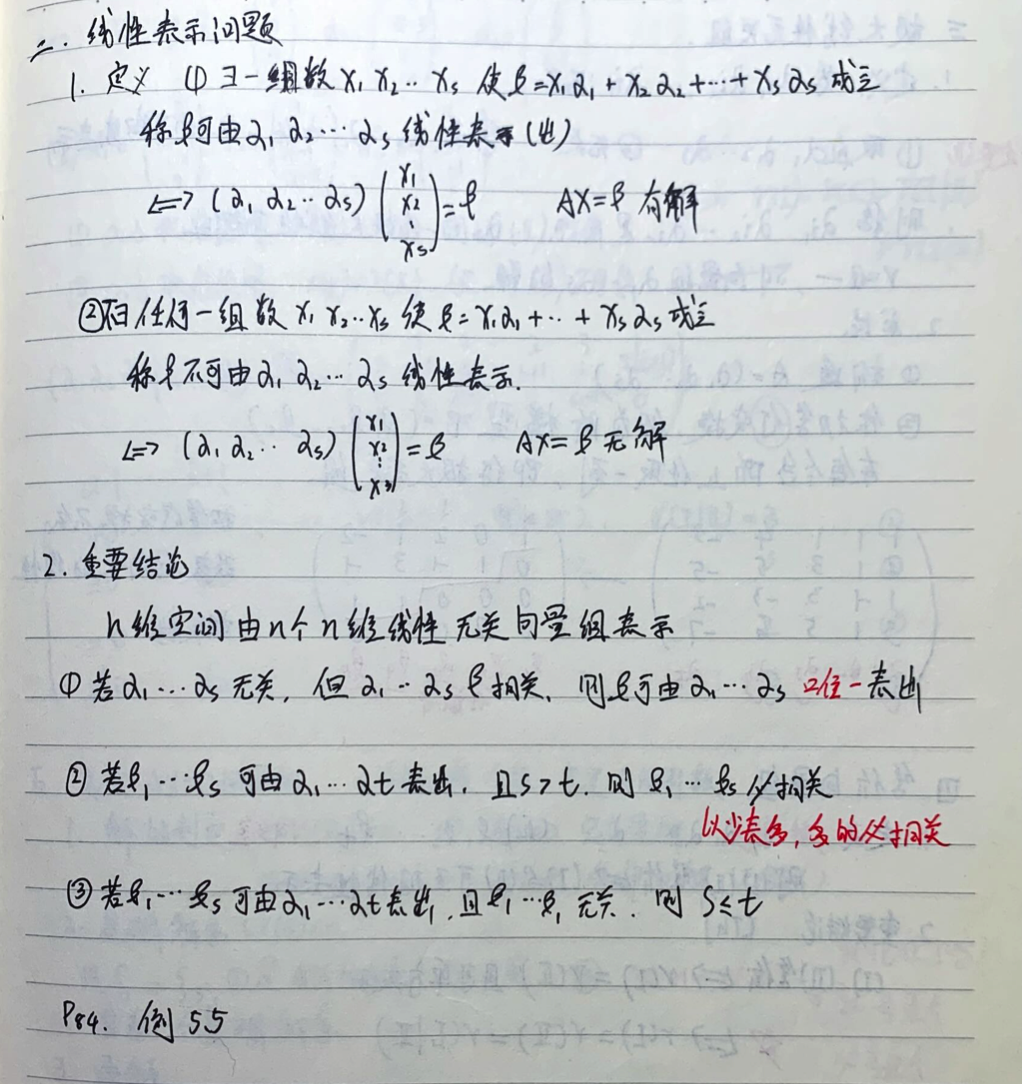 二. 线性表示问题
1. 定义 ① ∃一组数 x₁ x₂ ‥ xₛ 使 β=x₁α₁+x₂α₂+⋯+xₛαₛ 成立
称β可由α₁ α₂ ⋯ αₛ 线性表示(出)
⟺ (α₁ α₂ ‥ αₛ) (x₁ x₂ ⋮ xₛ) = β AX=β 有解
② 任何一组数 x₁ x₂ ‥ xₛ 使 β=x₁α₁+‥+xₛαₛ 成立
称β不可由α₁ α₂ ⋯ αₛ 线性表示.
⟺ (α₁ α₂ ‥ αₛ) (x₁ x₂ ⋮ xₛ) = β AX=β 无解
2. 重要结论
n维空间由n个n维线性无关向量组表示
① 若α₁⋯αₛ 无关, 但 α₁‥αₛ β相关, 则β可由α₁⋯αₛ 唯一表出
② 若β₁⋯βₛ 可由α₁⋯αt表出, 且s>t. 则 β₁⋯βₛ 必相关
以少表多, 多的必相关
③ 若β₁⋯βₛ 可由α₁⋯αt表出, 且β₁⋯β₁ 无关. 则 s≤t
P84. 例 5.5